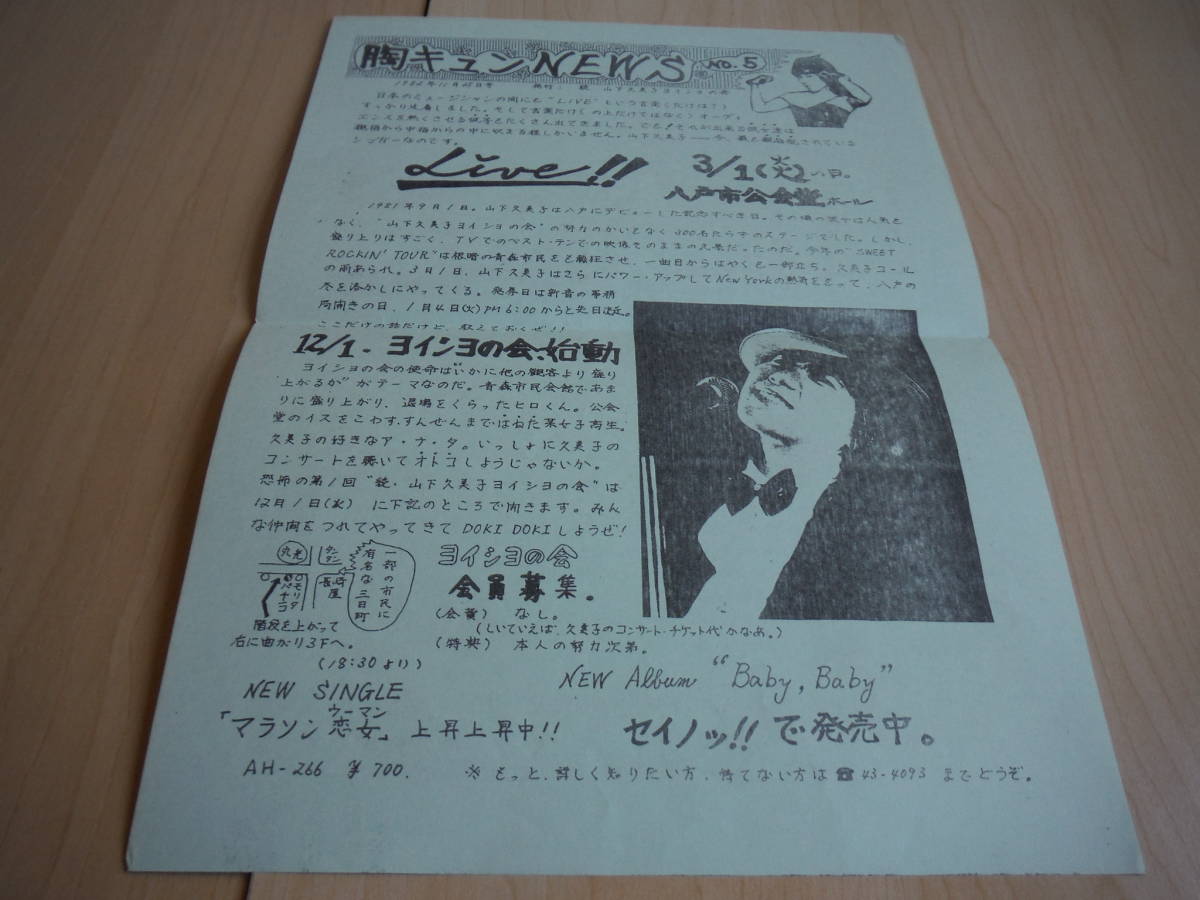 胸キュンNEWS NO.5
日本のミュージシャンの間にも"LIVE"という言葉(だけは?)
すっかり定着しました。そして言葉だけ(の上だけではなく)オーディ
エンスを熱くさせる
山下久美子
シンガーなのです。
Live!!
3/1(火)の日。
八戸市公会堂ホール
1981年9月1日。山下久美子は八戸にデビューした記念すべき日。その頃の
なく、"山下久美子ヨイショの会"の努力のかいもなく300名たらずのステージでした。しかし、
盛り上りはすごく、TVでのベスト・テンでの映像そのままの光景だったのだ。今年の"SWEET
ROCKIN' TOUR"は根暗の青森市民をも熱狂させ、一曲目からはやくも一部立ち。久美子コール
の雨あられ。3月1日、山下久美子はさらにパワー・アップしてNew Yorkの熱気をもって、八戸の
冬を溶かしにやってくる。発券日は新音の事務
所開きの日、1月4日(火)PM6:00からと先日決定。
ここだけの話だけど、教えておくぜ!!
12/1. ヨイショの会、始動
ヨイショの会の使命は"いかに他の観客より盛り
上がるか"がテーマなのだ。青森市民会館であま
りに盛り上がり、退場をくらったヒロくん。公会
堂のイスをこわす、すんぜんまではねた某女子高生。
久美子の好きなア・ナ・タ。いっしょに久美子の
コンサートを聴いてオトコしようじゃないか。
恐怖の第1回"続・山下久美子ヨイショの会"は
12月1日(水) に下記のところで開きます。みん
な仲間をつれてやってきてDOKI DOKIしようぜ!
丸光
長崎屋
モリタ
一部の市民に
有名な三日町
階段を上がって
右に曲がり3Fへ。
(18:30より)
ヨイショの会
会員募集。
(会費) なし。
(しいていえば、久美子のコンサート・チケット代かなあ。)
(特典) 本人の努力次第。
NEW SINGLE
「マラソン恋女」上昇上昇中!!
ウーマン
AH-266 ¥700.
NEW Album "Baby, Baby"
セイノッ!!で発売中。
※もっと、詳しく知りたい方、待てない方は☎43-4093までどうぞ。